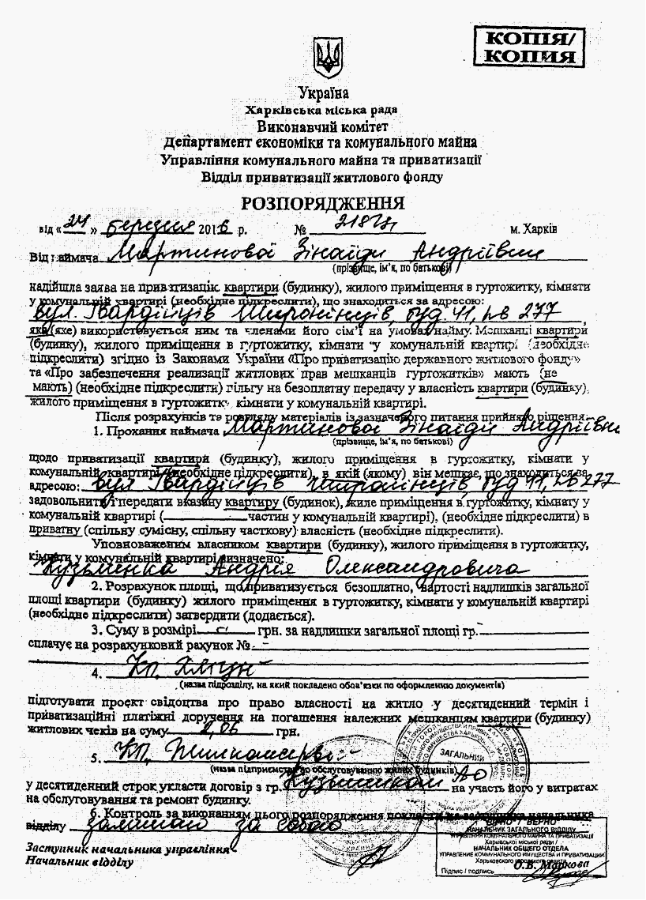 КОПІЯ/
КОПИЯ
Україна
Харківська міська рада
Виконавчий комітет
Департамент економіки та комунального майна
Управління комунального майна та приватизації
Відділ приватизації житлового фонду
РОЗПОРЯДЖЕННЯ
від « 24 » березня 2016 р. № м. Харків
Від наймача Мартинової Зінаїди Андріївни
(прізвище, ім'я, по батькові)
надійшла заява на приватизацію квартири (будинку), жилого приміщення в гуртожитку, кімнати
у комунальній квартирі (необхідне підкреслити), що знаходиться за адресою:
вул. Гвардійців Широнінців буд. 41, кв 277
яка (яке) використовується ним та членами його сім'ї на умовах найму. Мешканці квартири
(будинку), жилого приміщення в гуртожитку, кімнати у комунальній квартирі (необхідне
підкреслити) згідно із Законами України «Про приватизацію державного житлового фонду»
та «Про забезпечення реализації житлових прав мешканців гуртожитків» мають (не
мають) (необхідне підкреслити) пільгу на безоплатну передачу у власність квартири (будинку),
жилого приміщення в гуртожитку, кімнати у комунальній квартирі.
Після розрахунків та розгляду матеріалів із зазначеного питання прийнято рішення
1. Прохання наймача Мартинової Зінаїди Андріївни
(прізвище, ім'я, по батькові)
щодо приватизації квартири (будинку), жилого приміщення в гуртожитку, кімнати у
комунальній квартирі (необхідне підкреслити), в якій (якому) він мешкає, що знаходиться за
адресою: вул Гвардійців Широнінців, буд 41, кв 277
задовольнити і передати вказану квартиру (будинок), жиле приміщення в гуртожитку, кімнату у
комунальній квартирі ( частин у комунальній квартирі), (необхідне підкреслити) в
приватну (спільну сумісну, спільну часткову) власність (необхідне підкреслити).
Уповноваженим власником квартири (будинку), жилого приміщення в гуртожитку,
кімнати у комунальній квартирі визначено:
Кузьменка Андрія Олександровича
2. Розрахунок площі, що приватизується безоплатно, вартості надлишків загальної
площі квартири (будинку) жилого приміщення в гуртожитку, кімнати у комунальній квартирі
(необхідне підкреслити) затвердити (додається).
3. Суму в розмірі грн. за надлишки загальної площі гр.
сплачує на розрахунковий рахунок №
4. КП
(назва підрозділу, на який покладено обов'язки по оформленню документів)
підготувати проект свідоцтва про право власності на житло у десятиденний термін і
приватизаційні платіжні доручення на погашення належних мешканцям квартири (будинку)
житлових чеків на суму грн.
5. КП Жилкомсервіс
(назва підприємства по обслуговуванню жилих будинків)
у десятиденний строк укласти договір з гр. Кузьменком АО на участь його у витратах
на обслуговування та ремонт будинку.
6. Контроль за виконанням цього розпорядження покласти на заступника начальника
відділу залишаю за собою
ЗАГАЛЬНИЙ
Заступник начальника управління
Начальник відділу
ВІРНО / ВЕРНО
НАЧАЛЬНИК ЗАГАЛЬНОГО ВІДДІЛУ
УПРАВЛІННЯ КОМУНАЛЬНОГО МАЙНА ТА ПРИВАТИЗАЦІЇ
Харківської міської ради /
НАЧАЛЬНИК ОБЩЕГО ОТДЕЛА
УПРАВЛЕНИЕ КОММУНАЛЬНОГО ИМУЩЕСТВА И ПРИВАТИЗАЦИИ
Харьковского городского совета
О.В. Маркова
Підпис / подпись